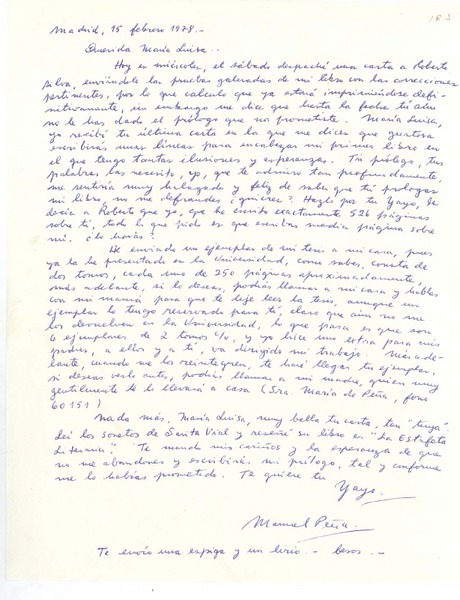 Madrid, 15 febrero 1978.-
Querida María Luisa..
Hoy es miércoles, el sábado despaché una carta a Roberto
Silva, enviándole las pruebas galeradas de mi libro con las correcciones
pertinentes, por lo que calculo que ya estará imprimiéndose defi-
nitivamente, sin embargo me dice que hasta la fecha tú aún
no le has dado el prólogo que no prometiste. María Luisa,
yo recibí tu última carta en la que me dices que gustosa
escribirás unas líneas para encabezar mi primer libro en
el que tengo tantas ilusiones y esperanzas. Tu prólogo, tus
palabras las necesito, yo, que te admiro tan profundamente,
me sentiría muy halagado y feliz de saber que tú prologas
mi libro, no me defraudes ¿quieres? Hazlo por tu Yayo, le
decía a Roberto que yo, que he escrito exactamente 526 páginas
sobre ti, todo lo que pido es que escribas media página sobre
mí. ¿lo harás?
He enviado un ejemplar de mi tesis a mi casa, pues
ya la he presentado en la Universidad, como sabes, consta de
dos tomos, cada uno de 250 páginas aproximadamente,
más adelante, si lo deseas, podrías llamar a mi casa y hablas
con mi mamá para que te deje leer la tesis, aunque un
ejemplar lo tengo reservado para tí, claro que aún no me
los devuelven en la Universidad, lo que pasa es que son
6 ejemplares de 2 tomos c/u, y yo hice uno extra para mis
padres, a ellos y a tí, va dirigido mi trabajo. Más ade-
lante, cuando me los reintegren, te haré llegar tu ejemplar,
si deseas verlo antes, podrías llamar a mi madre, quien muy
gentilmente te lo llevará a casa (Sra. María de Peña, fono
60151)
Nada más. María Luisa, muy bella tu carta, tan "tuya".
Leí los sonetos de Sarita Vial y reseñé su libro en "La Estafeta
Literaria." Te mando mis cariños y la esperanza de que
no me abandones y escribirás mi prólogo, tal y conforme
me lo habías prometido. Te quiere tu
Yayo.
Manuel Peña.
Te envío una espiga y un lirio.- besos.-